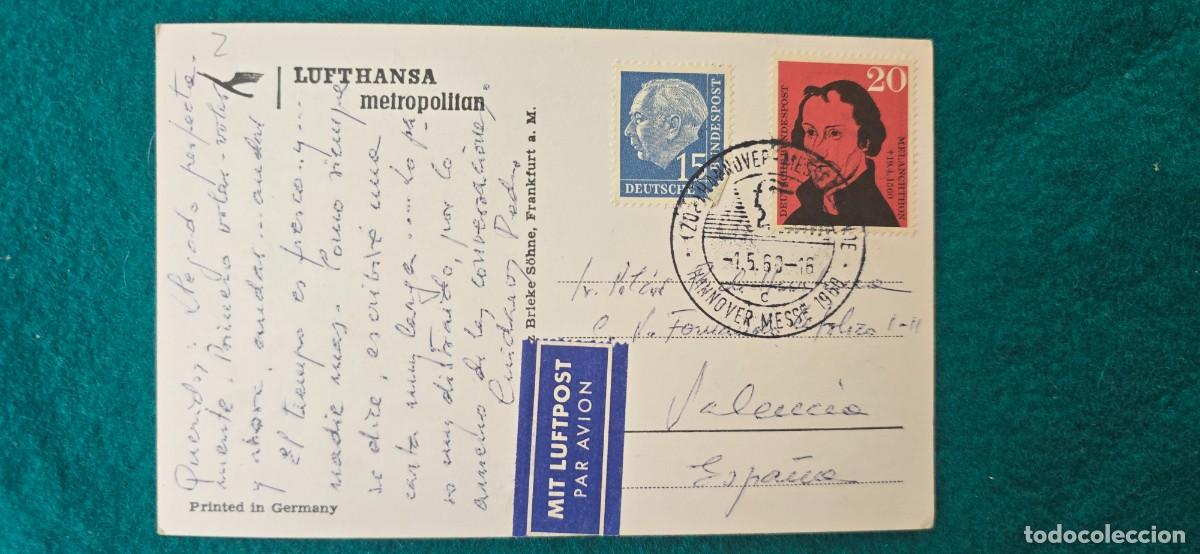 LUFTHANSA
metropolitan
Queridos: Llegado perfecta-
mente. Primero volar-volar
y ahora: andar ... andar
El tiempo es fresco... y ...
nadie mas. Como siempre
se dice, escribiré una
carta muy larga ... Lo pa-
so muy distraido, por lo
ameno de las conversaciones,
Cuidaros Pedro
Printed in Germany
z Brieke Söhne, Frankfurt a. M.
MIT LUFTPOST
PAR AVION
15
DEUTSCHE BUNDESPOST
20
DEUTSCHE BUNDESPOST
MELANCHTHON
+19.4.1560
HANNOVER-MESSE
-1.5.60-16
c
HANNOVER MESSE 1960
Sr.
Valencia
España
todocoleccion